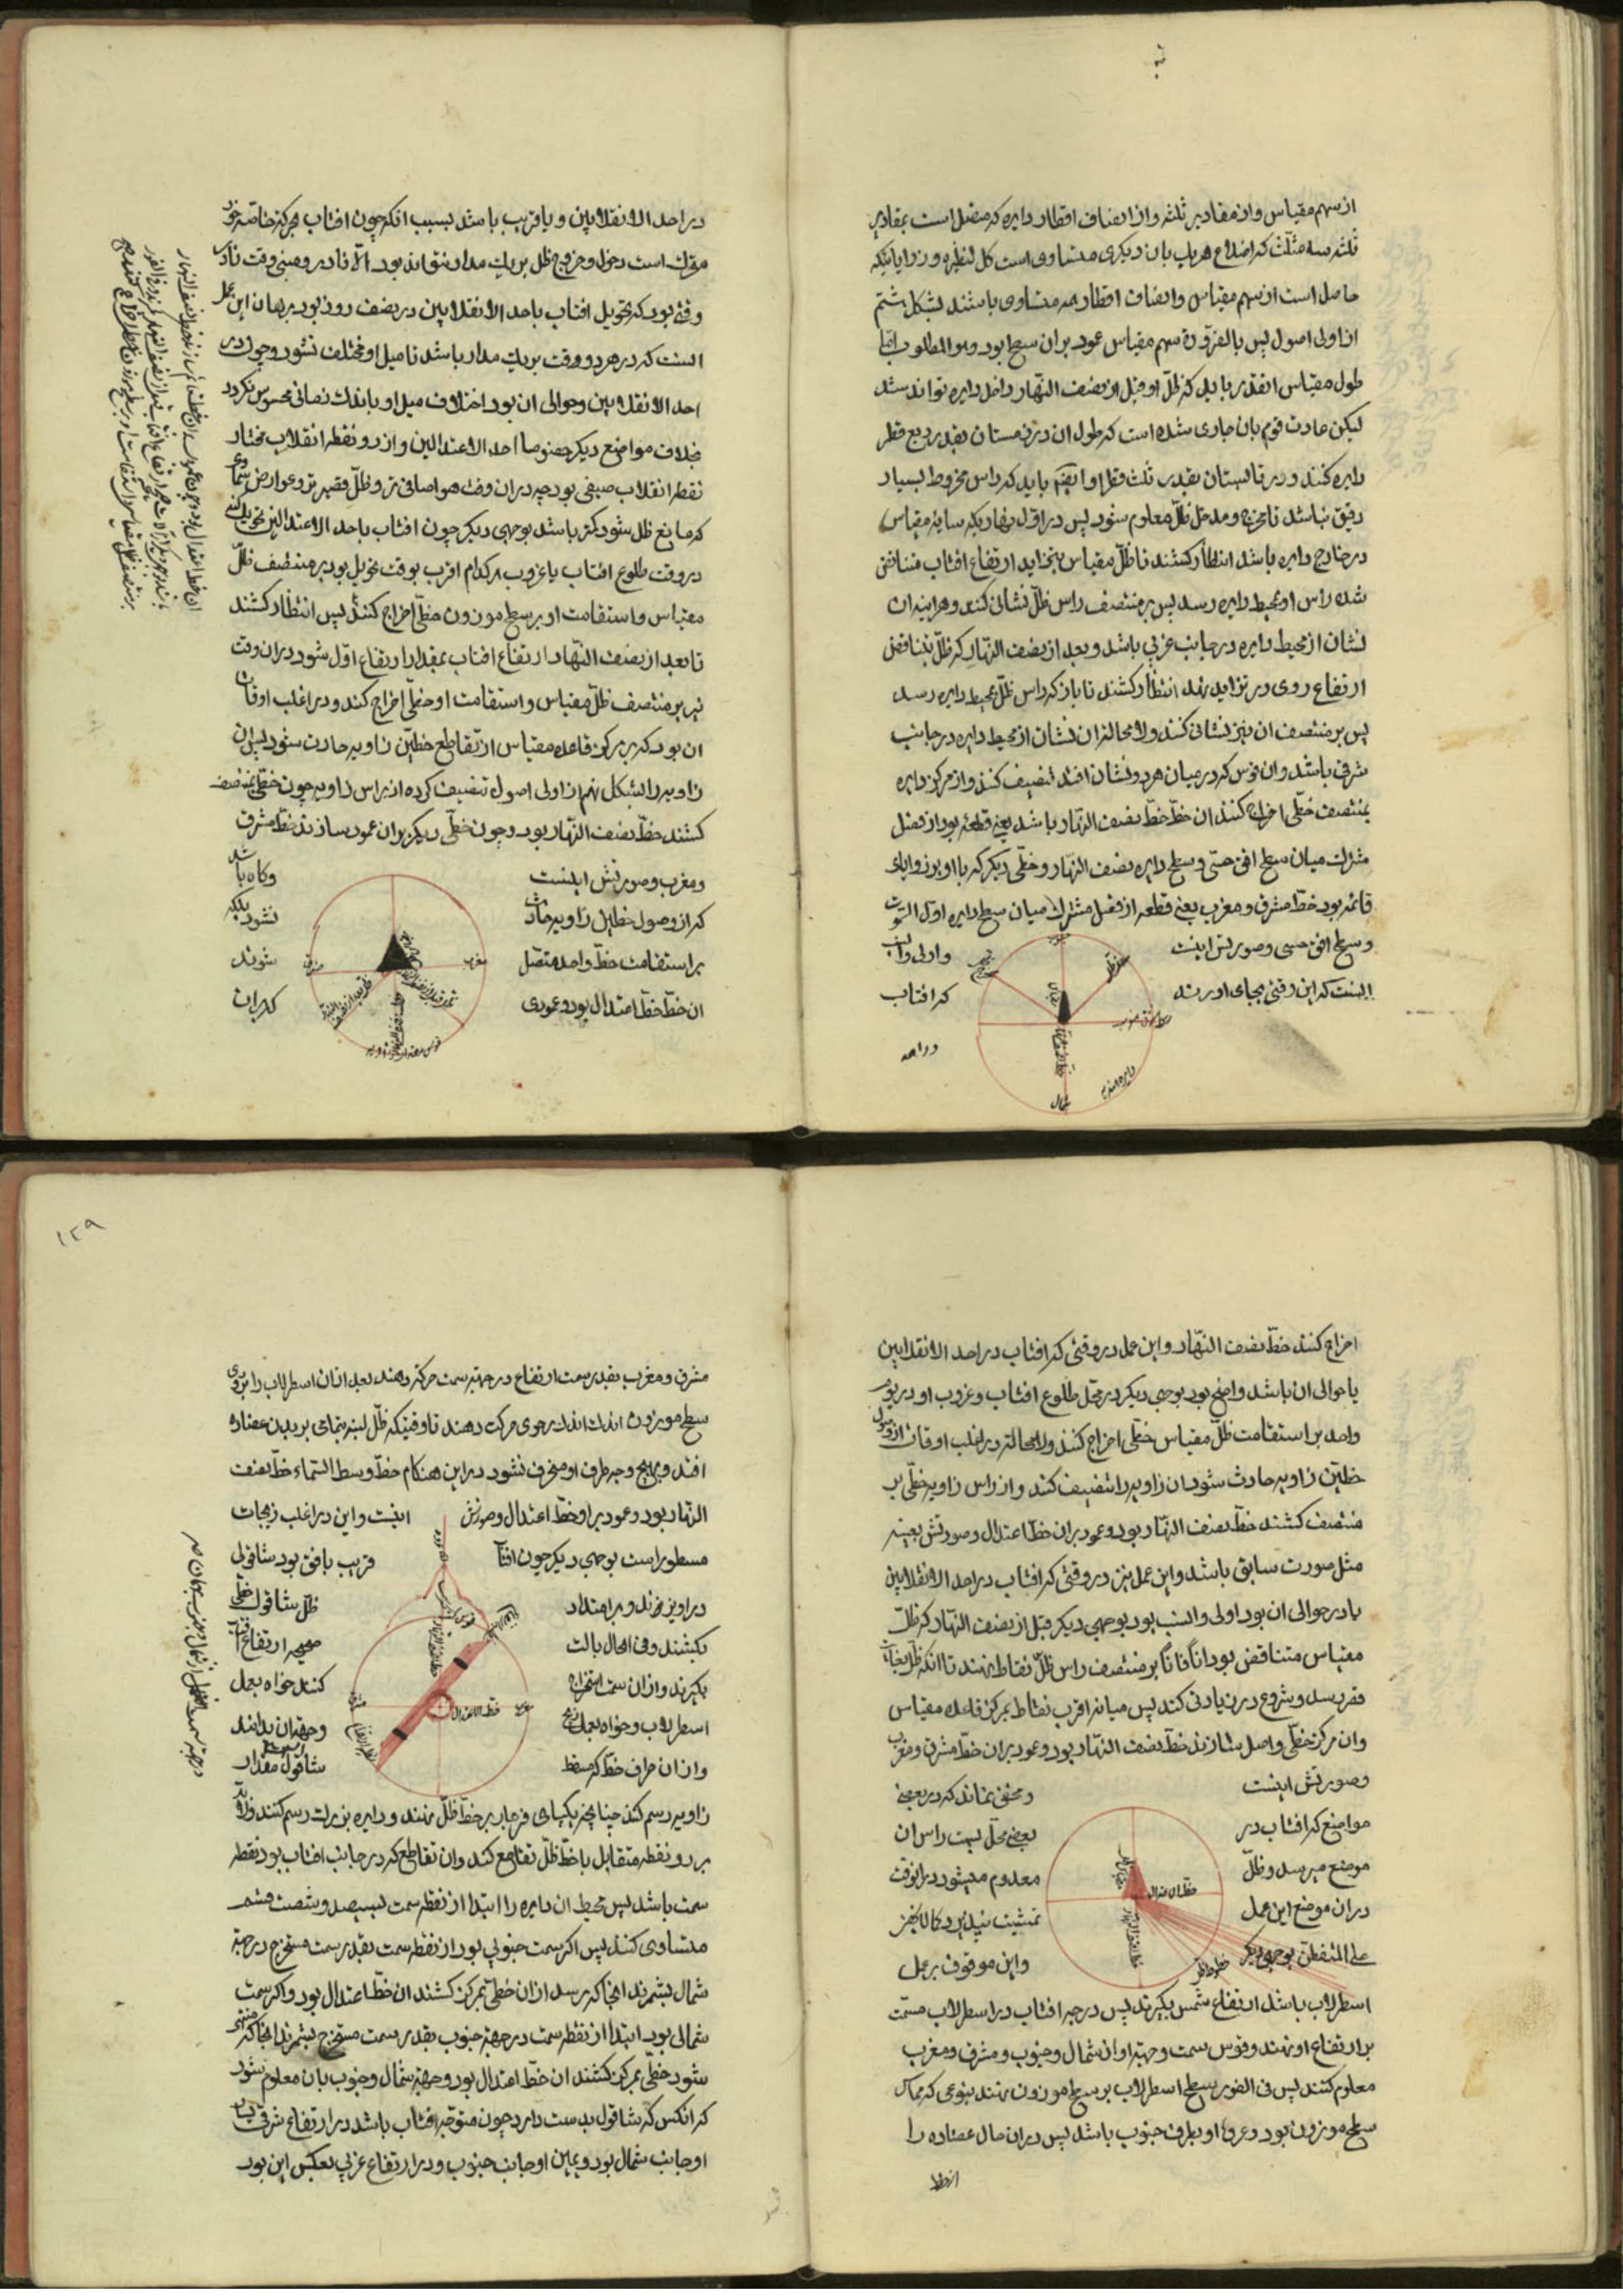 از سهم مقیاس و از مقادیر ثلثه و از انصاف اقطار دایره که متصل است بمقادیر
ثلثه سه مثلث که اضلاع هر یک بآن دیگری متساوی است کل لنظیره و زوایائیکه
حاصل است از سهم مقیاس و انصاف اقطار همه متساوی باشند بشکل هشتم
از اولی اصول پس بالضرورة سهم مقیاس عمود بران سطح بود و هو المطلوب اما
طول مقیاس انقدر باید که ظل او قبل از نصف النهار داخل دایره تواند شد
لیکن عادت قوم بان جاری شده است که طول ان در زمستان بقدر ربع قطر
دایره کنند و در تابستان بقدر ثلث قطر او ایضا باید که راس مخروط بسیار
دقیق نباشد تا مخرج و مدخل ظل معلوم شود پس در اول نهار که سایه مقیاس
در خارج دایره باشد انتظار کشند تا ظل مقیاس بتزاید ارتفاع افتاب متناقص
شده راس او بمحیط دایره رسد پس بر منتصف راس ظل نشانی کنند و هر اینه ان
نشان از محیط دایره در جانب غربی باشد و بعد از نصف النهار که ظل بتناقص
ارتفاع روی در تزاید نهد انتظار کشند تا باز که راس ظل بمحیط دایره رسد
پس بر منتصف ان نیز نشانی کنند و لا محاله ان نشان از محیط دایره در جانب
شرقی باشد و ان قوس که در میان هر دو نشان افتد تنصیف کنند و از مرکز دایره
بمنتصف خطی اخراج کنند ان خط خط نصف النهار باشد یعنی قطعه بود از فصل
مشترک میان سطح افق حسی و سطح دایره نصف النهار و خطی دیگر که با او بر زوایای
قائمه بود خط مشرق و مغرب یعنی قطعه از فصل مشترک میان سطح دایره اول السموت
و سطح افق حسی و صورتش اینست و اولی و انسب
انست که این وقتی بجای اورند که افتاب
جنوب
شمال
در احد
در احد الانقلابین و یا قریب باشد بسبب انکه چون افتاب بحرکه خاصه خود
متحرک است دخول و خروج ظل بر یک مدار نتواند بود الا نادر و مبنی وقت نادر
وقتی بود که تحویل افتاب باحد الانقلابین در نصف روز بود برهان این عمل
انست که در هر دو وقت بر یک مدار باشد تا میل او مختلف نشود و چون در
احد الانقلابین و حوالی ان بود اختلاف میل او باندک زمانی محسوس نکردد
بخلاف مواضع دیگر خصوصا احد الاعتدالین و از دو نقطه انقلاب مختار
نقطه انقلاب صیفی بود چه دران وقت هوا صافی تر و ظل قصیرتر و عوارض سماوی
که مانع ظل شود کمتر باشد بوجهی دیگر چون افتاب باحد الاعتدالین تحویل کند
در وقت طلوع افتاب یا غروب هر کدام اقرب بوقت تحویل بود بر منتصف ظل
مقیاس و استقامت او بر سطح موزون خطی اخراج کنند پس انتظار کشند
تا بعد از نصف النهار ارتفاع افتاب بمقدار ارتفاع اول شود دران وقت
نیز بر منتصف ظل مقیاس و استقامت او خطی اخراج کند و در اغلب اوقات
ان بود که بر مرکز قاعده مقیاس از تقاطع خطین زاویه حادث شود پس ان
زاویه را بشکل نهم از اولی اصول تنصیف کرده از راس زاویه چون خطی بمنتصف
کشند خط نصف النهار بود و چون خطی دیگر بران عمود سازند خط مشرق
و مغرب و صورتش اینست و کاه باشد
که از وصول خطین زاویه حادث نشود بلکه
بر استقامت خط واحد متصل شوند
ان خط خط اعتدال بود و عمودی که بران
مغرب
مشرق
اخراج کنند خط نصف النهار و این عمل در وقتی که افتاب در احد الانقلابین
یا حوالی ان باشد واضح بود بوجهی دیگر در محل طلوع افتاب و غروب او در یوم
واحد بر استقامت ظل مقیاس خطی اخراج کنند و لا محاله در اغلب اوقات از وصول
خطین زاویه حادث شود ان زاویه را تنصیف کنند و از راس زاویه خطی بر
منتصف کشند خط نصف النهار بود و عمود بران خط اعتدال و صورتش بعینه
مثل صورت سابق باشد و این عمل نیز در وقتی که افتاب در احد الانقلابین
یا در حوالی ان بود اولی و انسب بود بوجهی دیگر قبل از نصف النهار که ظل
مقیاس متناقص بود انا فانا بر منتصف راس ظل نقاط نهند تا انکه ظل بغایت
قصر رسد و شروع در زیادتی کند پس میانه اقرب نقاط بمرکز قاعده مقیاس
و ان مرکز خطی واصل سازند خط نصف النهار بود و عمود بران خط مشرق و مغرب
و صورتش اینست و مخفی نماند که در بعضی
مواضع که افتاب در بعضی محل بسمت راس ان
موضع میرسد و ظل معدوم میشود در انوقت
دران موضع این عمل تمشیت نپذیرد کما لا یخفی
علی المتفطن بوجهی دیگر و این موقوف بر عمل
خط اعتدال
خط نصف النهار
خطوط ظل
اسطرلاب باشد ارتفاع شمس بگیرند پس درجه افتاب در اسطرلاب مسمت
بران ارتفاع او نهند و قوس سمت و جهة او از شمال و جنوب و مشرق و مغرب
معلوم کنند پس فی الفور سطح اسطرلاب بر سطح موزون نهند بنوعی که مماس
سطح موزون بود و عروة او بطرف جنوب باشد پس دران حال عضاده را
از خط
۱۲۹
مشرق و مغرب بقدر سمت ارتفاع در جهة سمت حرکة دهند بعد از ان اسطرلاب را بر روی
سطح موزون اندک اندک برحوی حرکت دهند تا وقتیکه ظل لبنه بتمامی بر بدن عضاده
افتد و بهیچ وجه طرف او منحرف نشود در این هنکام خط وسط السماء خط نصف
النهار بود و عمود بر او خط اعتدال و صورتش اینست و این در اغلب زیجات
مسطور است بوجهی دیگر چون افتاب قریب بافق بود شاقولی
در اویزند و بر امتداد ظل شاقول خطی
بکشند و فی الحال بالت صحیحه ارتفاع افتاب
بگیرند و از ان سمت استخراج کنند خواه بعمل
اسطرلاب و خواه بعمل زیج و جهة ان بدانند
و از ان طرف خط که مسقط شاقول مقدار
مشرق
مغرب
خط الاعتدال
خط نصف النهار
زاویه رسم کند چنانچه یکپای فرجار بر خط ظل نهند و دایره بزرگ رسم کنند و لابد
بر دو نقطه متقابل با خط ظل تقاطع کند و ان تقاطع که در جانب افتاب بود نقطه
سمت باشد پس محیط ان دایره را ابتدا از نقطه سمت بسیصد و شصت قسم
متساوی کنند پس اگر سمت جنوبی بود از نقطه سمت بقدر سمت مستخرج در جهة
شمال بشمرند انجا که برسد از ان خطی بمرکز کشند ان خط اعتدال بود و اگر سمت
شمالی بود ابتدا از نقطه سمت در جهة جنوب بقدر سمت مستخرج بشمرند انجا که منتهی
شود خطی بمرکز کشند ان خط اعتدال بود و جهة شمال و جنوب بان معلوم شود
که انکس که شاقول بدست دارد چون متوجه افتاب باشد در ارتفاع شرقی یسار
او جانب شمال بود و یمین او جانب جنوب و در ارتفاع غربی بعکس این بود